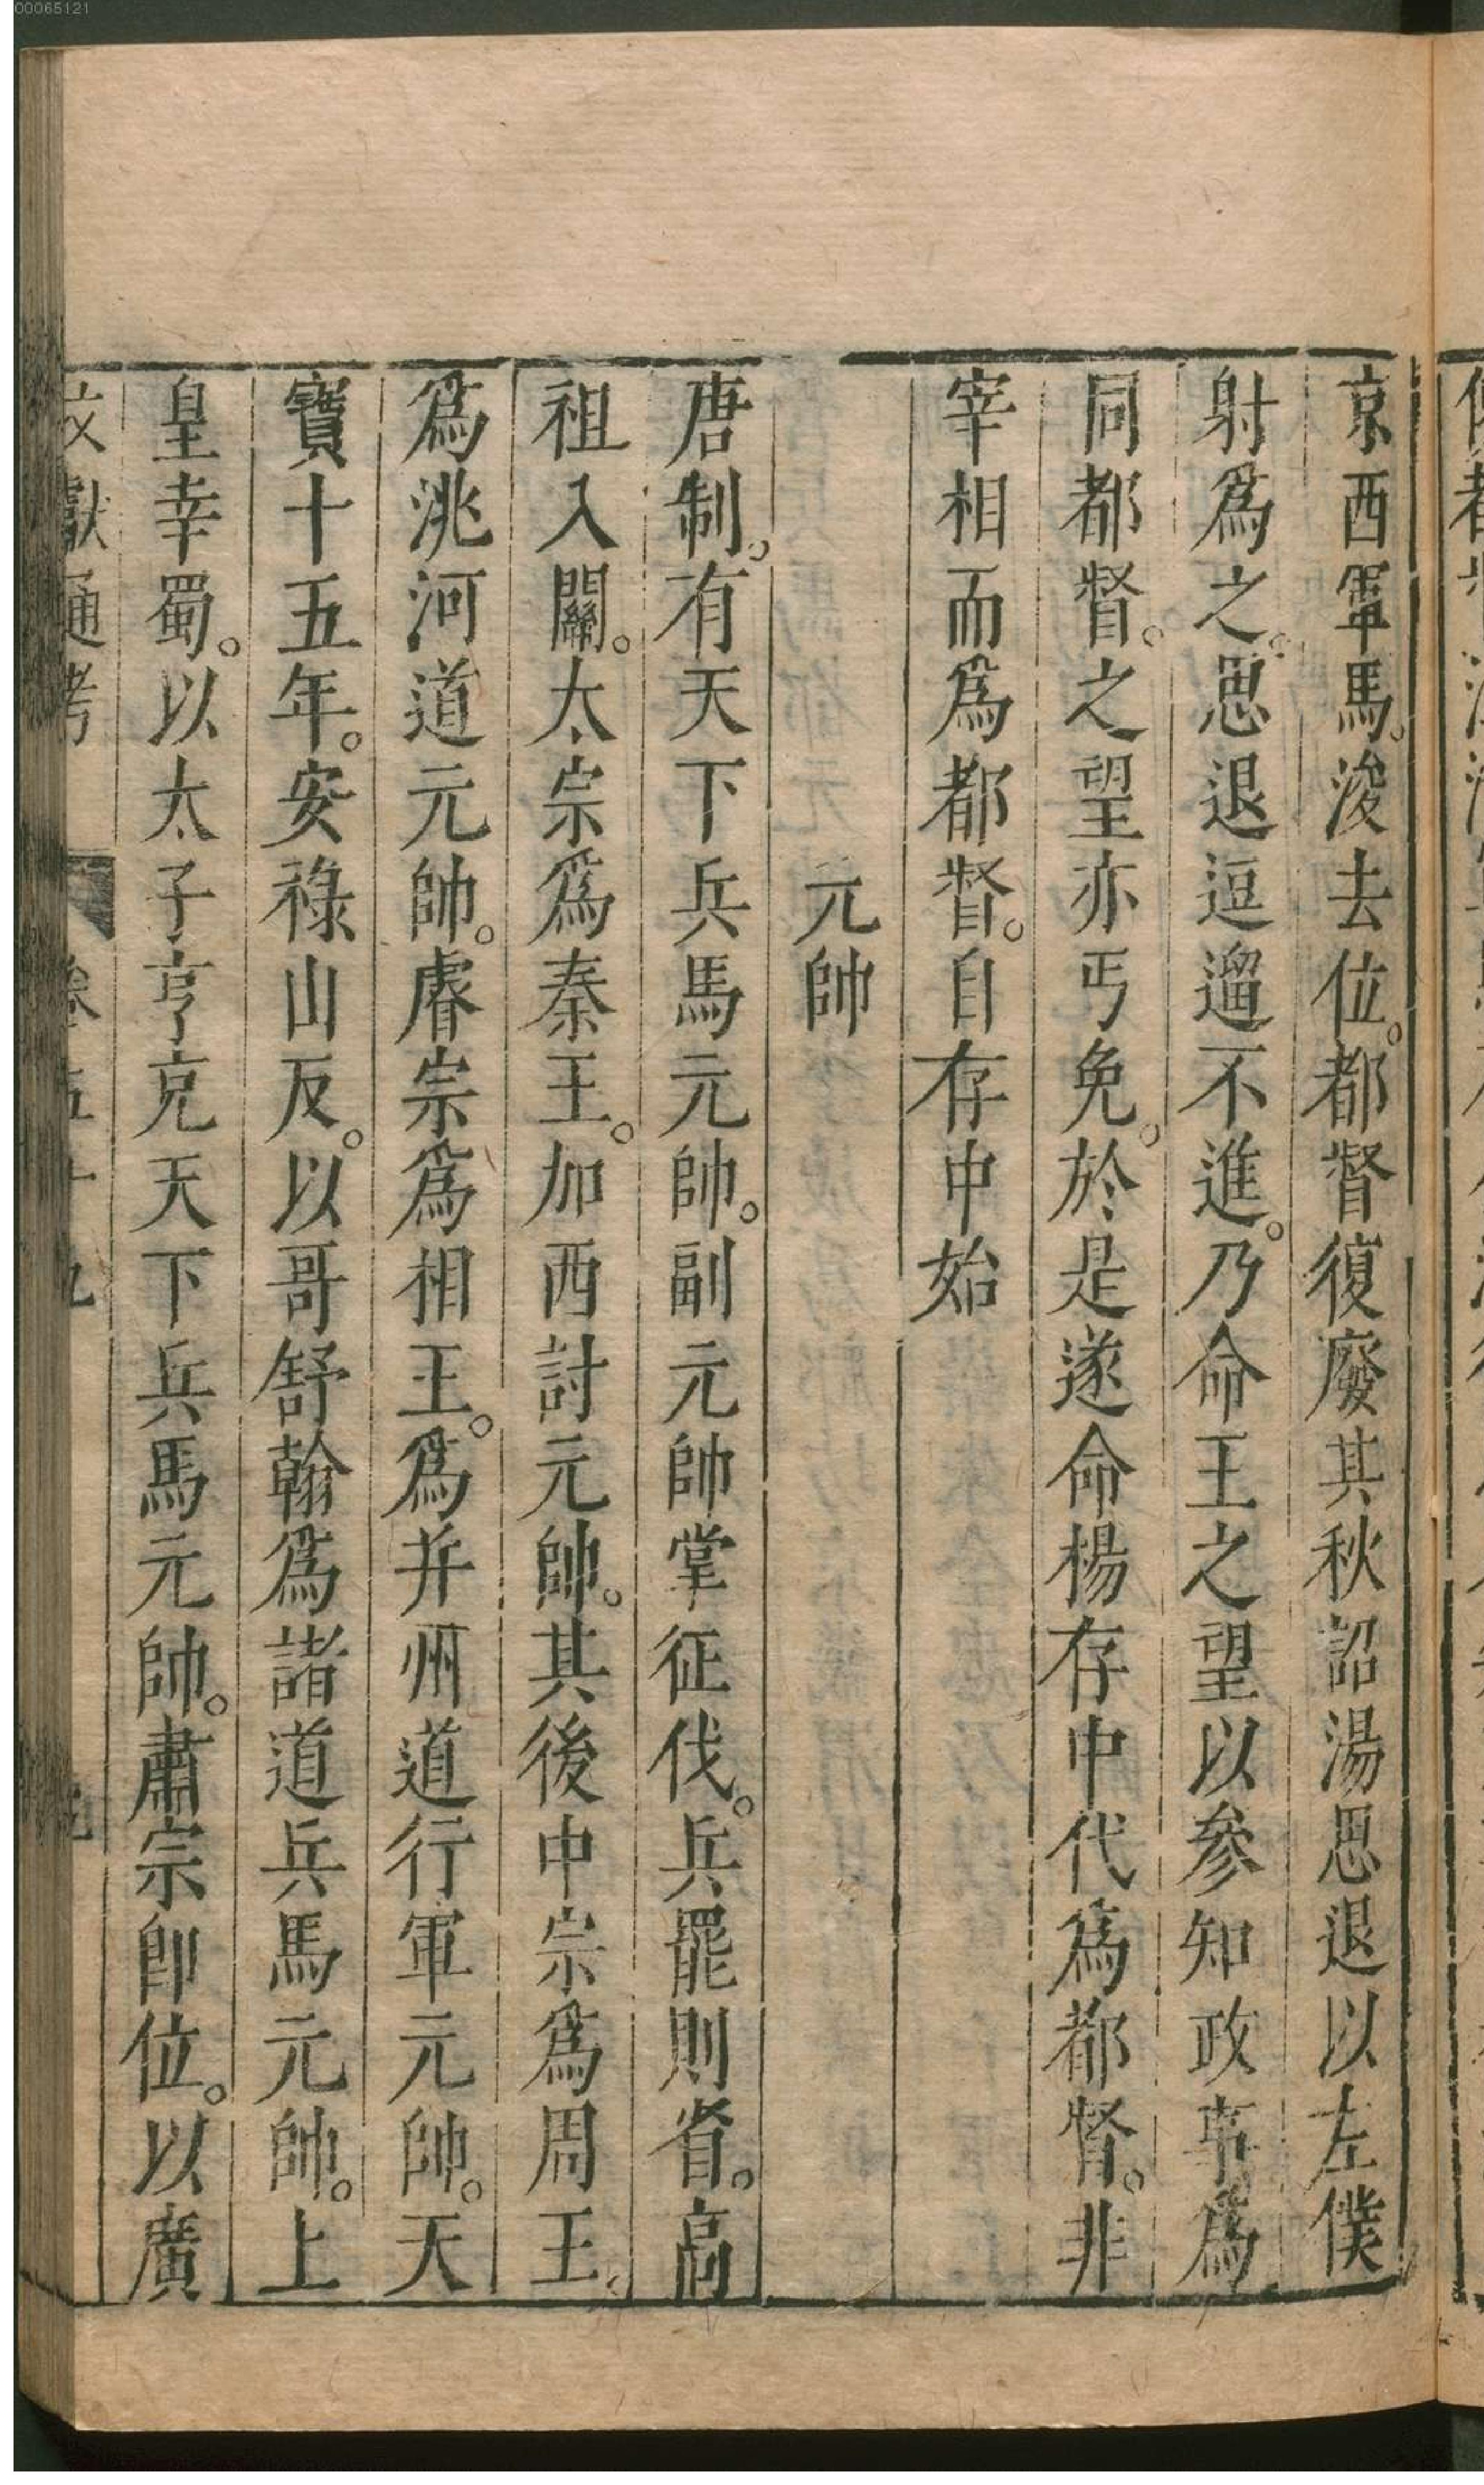 京西軍馬。浚去位。都督復廢其秋詔湯思退以左僕
射爲之。思退逗遛不進。乃命王之望以參知政事爲
同都督。之望亦丐免。於是遂命楊存中代爲都督。非
宰相而爲都督。自存中始
元帥
唐制。有天下兵馬元帥。副元帥掌征伐。兵罷則省。高
祖入關。太宗爲秦王。加西討元帥。其後中宗爲周王。
爲洮河道元帥。睿宗爲相王。爲并州道行軍元帥。天
寶十五年。安祿山反。以哥舒翰爲諸道兵馬元帥。上
皇幸蜀。以太子亨克天下兵馬元帥。肅宗卽位。以廣
文獻通考 卷五十九
00065121